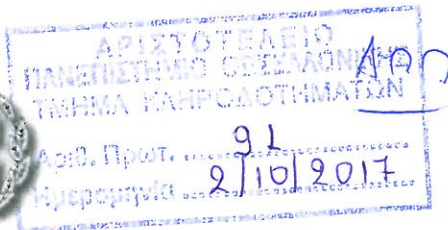 ΑΡΙΣΤΟΤΕΛΕΙΟ
ΠΑΝΕΠΙΣΤΗΜΙΟ ΘΕΣΣΑΛΟΝΙΚΗΣ
ΤΜΗΜΑ ΚΛΗΡΟΔΟΤΗΜΑΤΩΝ
Αριθ. Πρωτ. 91
Ημερομηνία 2/10/2017